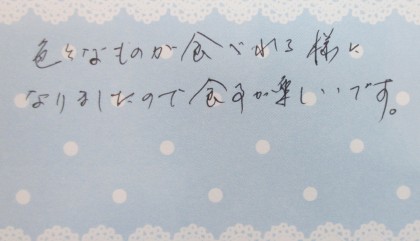 色々なものが食べれる様に
なりましたので食事が楽しいです。